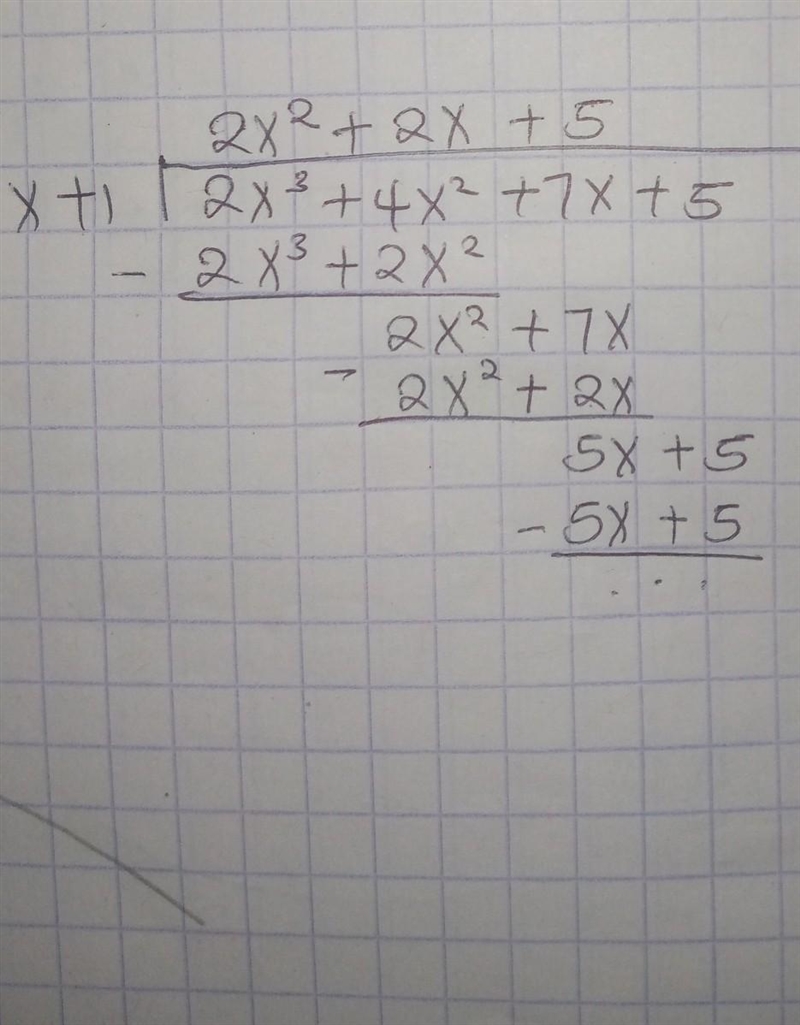 2x² + 2x + 5
x + 1 | 2x³ + 4x² + 7x + 5
- 2x³ + 2x²
2x² + 7x
- 2x² + 2x
5x + 5
- 5x + 5
. . .